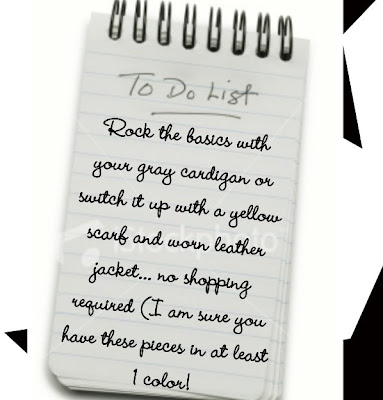 To Do List
Rock the basics with
your gray cardigan or
switch it up with a yellow
scarf and worn leather
jacket... no shopping
required (I am sure you
have these pieces in at least
1 color!